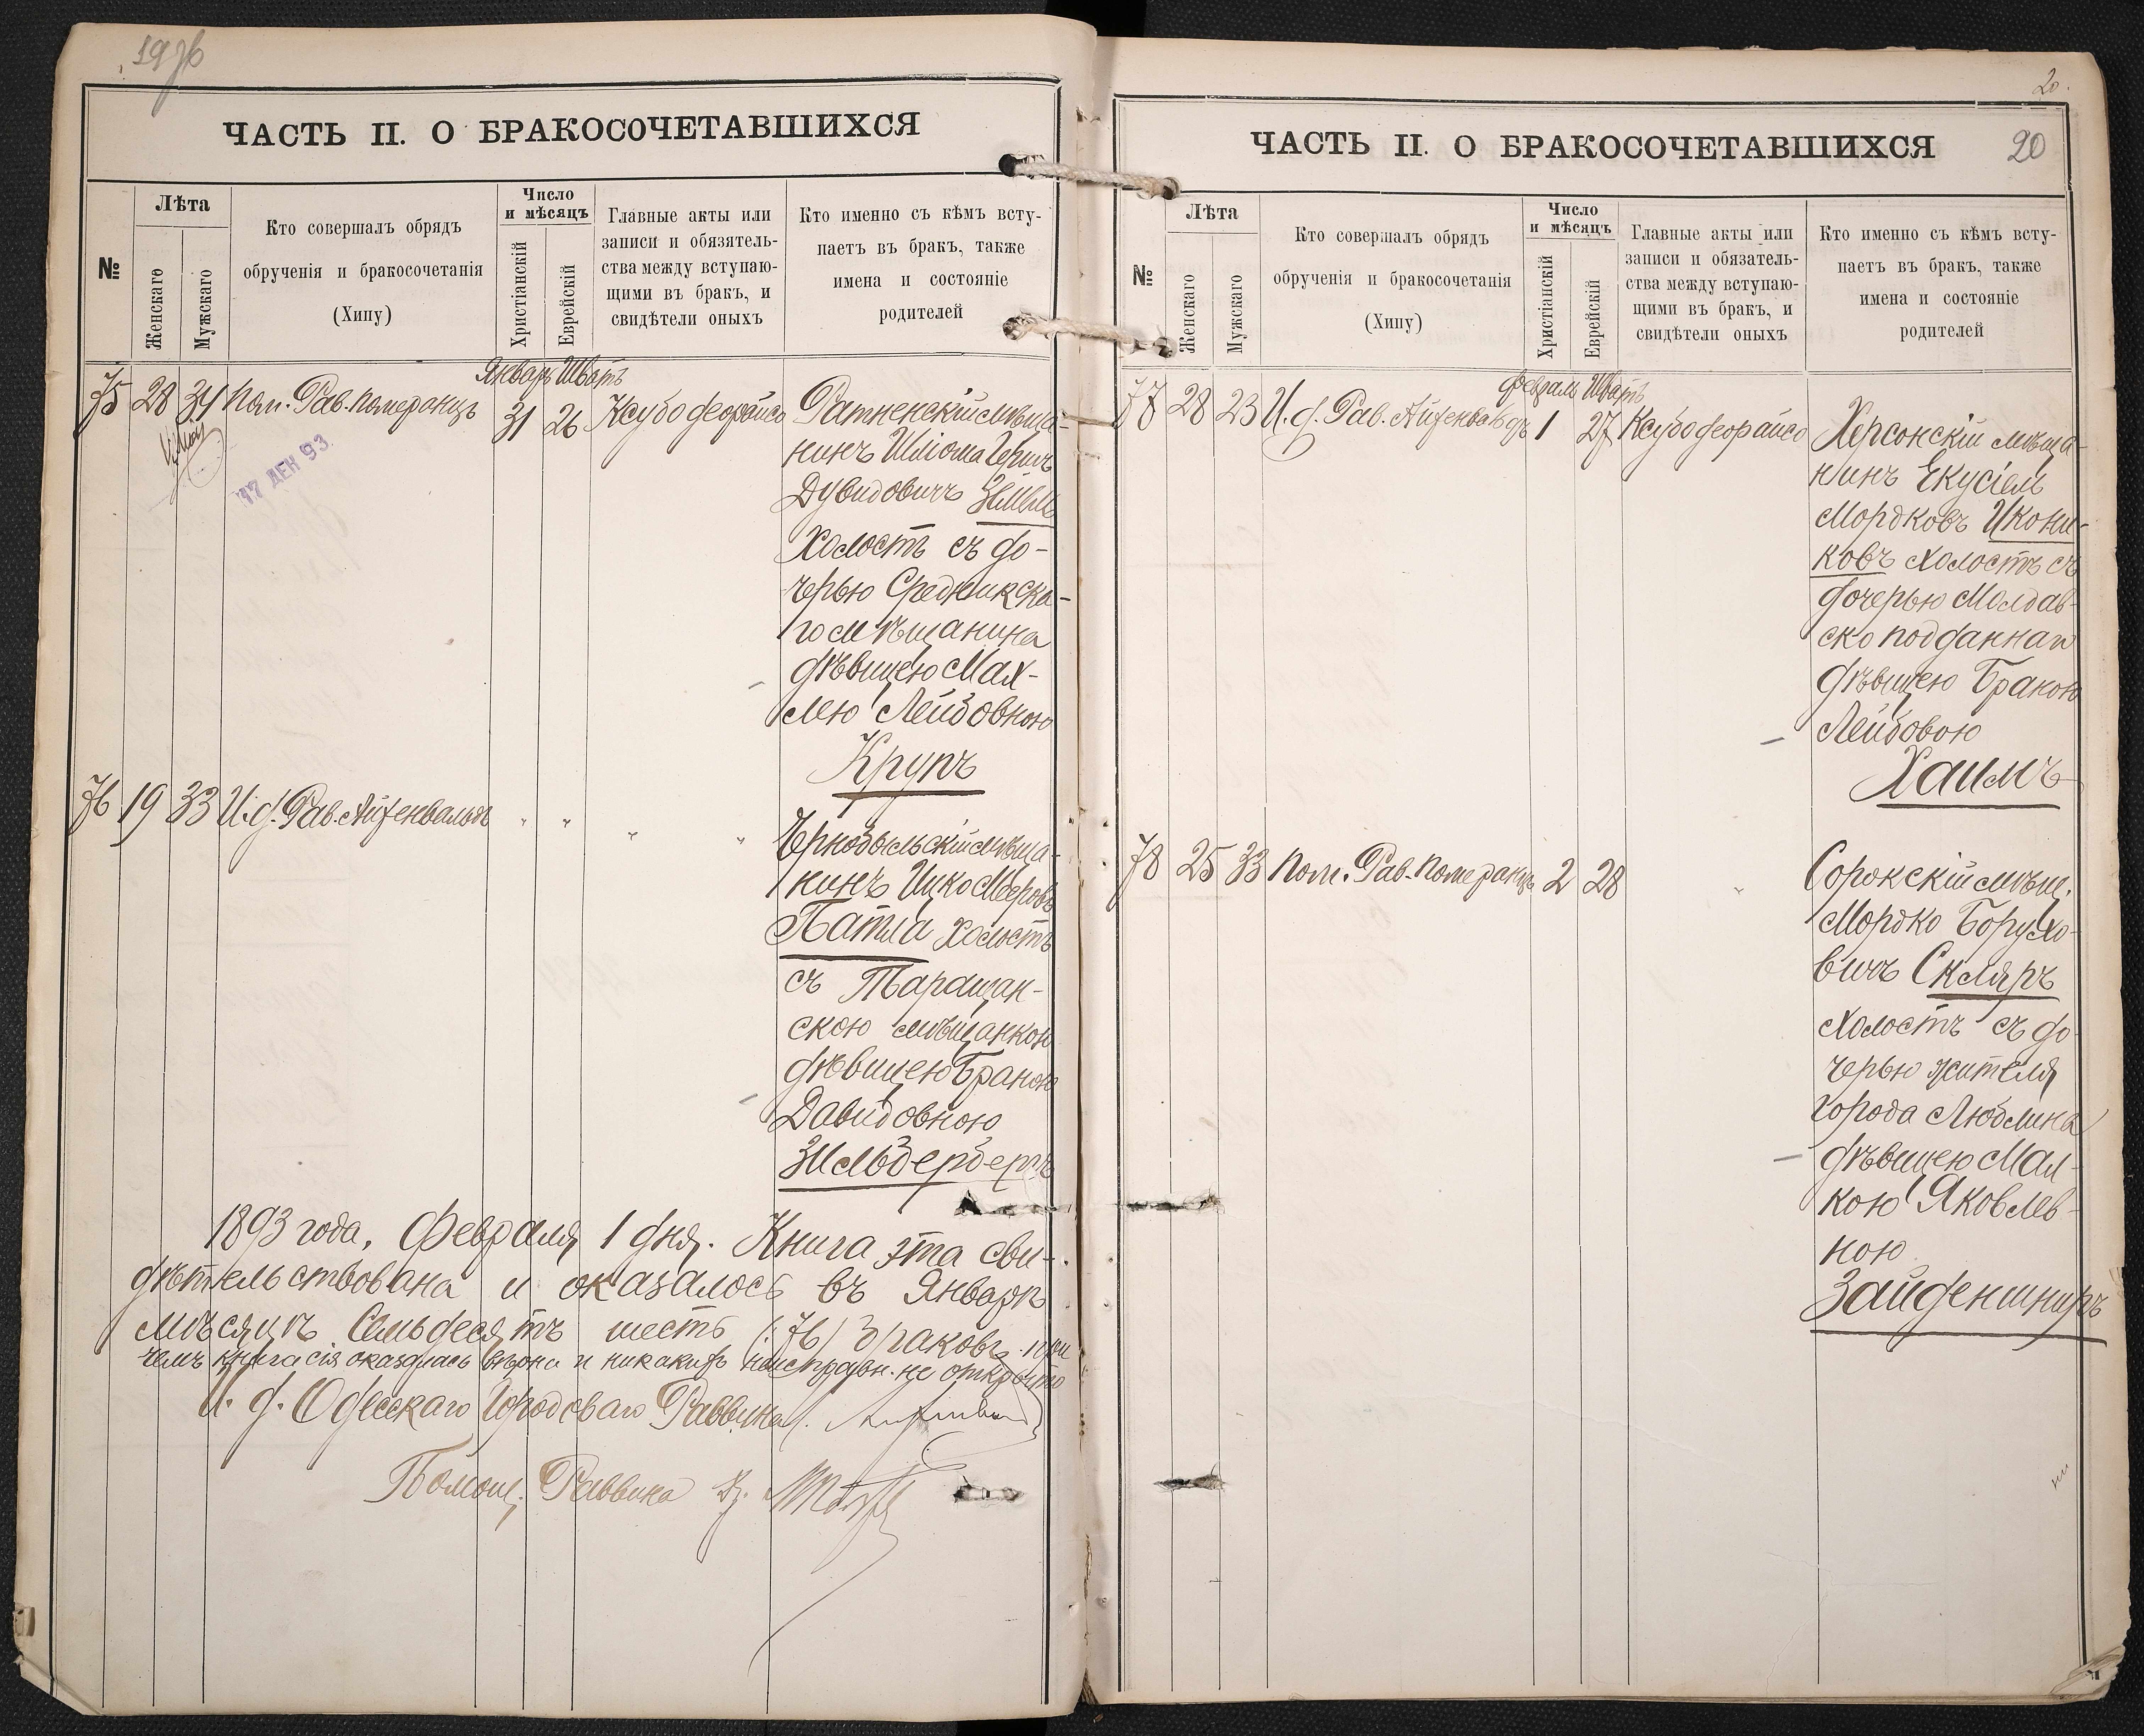 19 об
ЧАСТЬ II. О БРАКОСОЧЕТАВШИХСЯ
№
Лѣта
Женскаго
Мужскаго
Кто совершалъ обрядъ
обрученія и бракосочетанія
(Хипу)
Число
и мѣсяцъ
Христіанскій
Еврейскій
Главные акты или
записи и обязятель-
ства между вступаю-
щими въ бракъ, и
свидѣтели оныхъ
Кто именно съ кѣмъ всту-
паетъ въ бракъ, также
имена и состояніе
родителей
Январь Шватъ
75 28 34 Пом. Рав. Померанцъ 31 26 Ксубо деорайсо
17 ДЕК 93
Ратненскій мѣща-
нинъ Шліома Гершъ
Дувидовичъ
Холостъ съ до-
черью Средникска-
го мѣщанина
дѣвицею Мах-
лею Лейбовною
Крупъ
76 19 33 И. д. Рав. Айзенвальдъ " " " "
Чернобыльскій мѣща-
нинъ Ицко Мееровъ
Патла холостъ
съ Таращан-
скою мѣщанкою
дѣвицею Браною
Давидовною
Зильбербергъ
1893 года, Февраля 1 дня. Книга эта сви-
дѣтельствована и оказалось въ Январѣ
мѣсяцѣ Семьдесятъ шесть (:76) браковъ. при
чемъ книга сія оказалась вѣрна и никакихъ неисправн. не открыто
И. д. Одесскаго Городоваго Раввина
Помощ. Раввина Др.
2о.
ЧАСТЬ II. О БРАКОСОЧЕТАВШИХСЯ
20
№
Лѣта
Женскаго
Мужскаго
Кто совершалъ обрядъ
обрученія и бракосочетанія
(Хипу)
Число
и мѣсяцъ
Христіанскій
Еврейскій
Главные акты или
записи и обязатель-
ства между вступаю-
щими въ бракъ, и
свидѣтели оныхъ
Кто именно съ кѣмъ всту-
паетъ въ бракъ, также
имена и состояніе
родителей
Февраль Шватъ
77 28 23 И. д. Рав. Айзенвальдъ 1 27 Ксубо деорайсо
Херсонскій мѣща-
нинъ Екусіель
Мордковъ Икони-
ковъ холостъ съ
дочерью Молдав-
ско подданнаго
дѣвицею Браною
Лейбовою
Хаимъ
78 25 33 Пом. Рав. Померанцъ 2 28 "
Сорокскій мѣщ.
Мордко Борухо-
вичъ Скляръ
холостъ съ до-
черью жителя
города Люблина
дѣвицею Мал-
кою Яковлев-
ною
Зайденшниръ